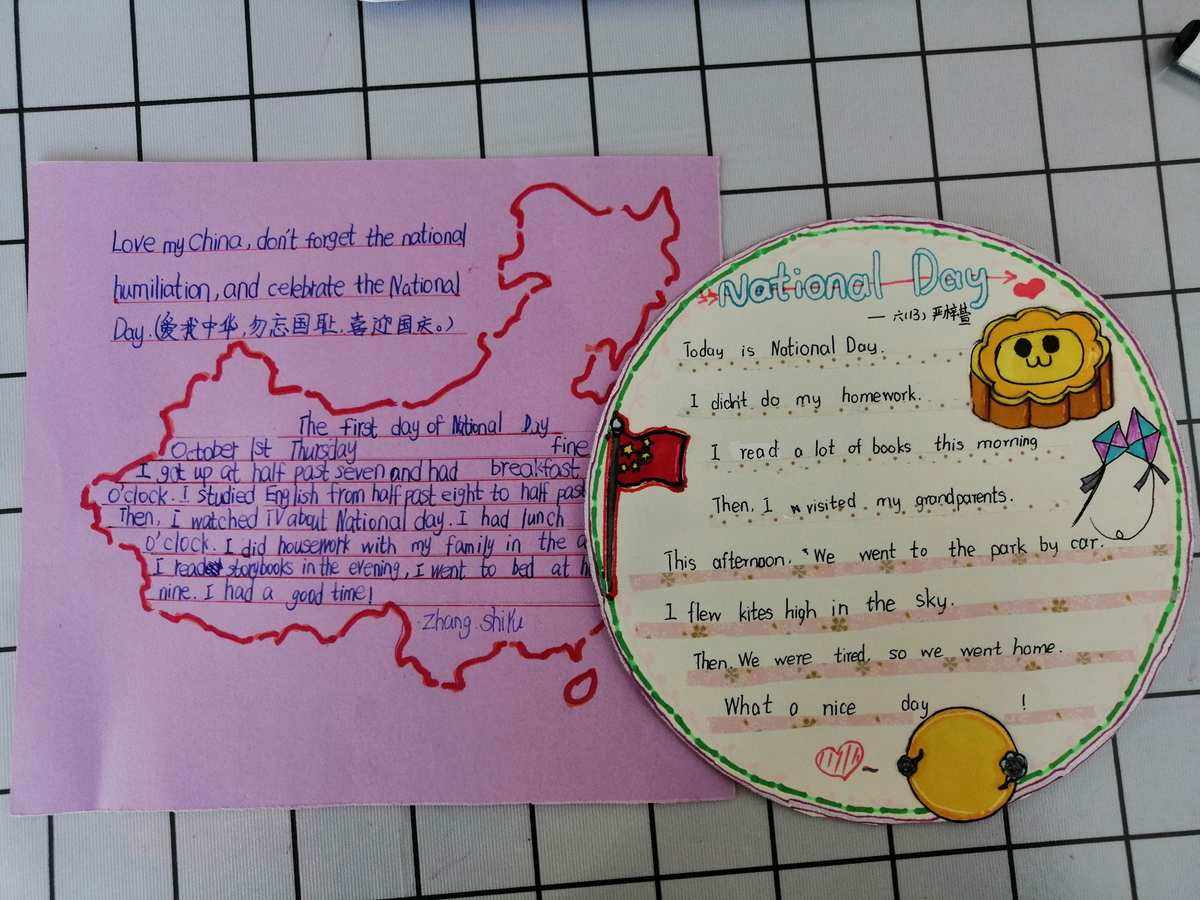 Love my China, don't forget the national
humiliation, and celebrate the National
Day.(爱我中华,勿忘国耻.喜迎国庆。)
The first day of National Day
October 1st Thursday fine
I got up at half past seven and had breakfast
O'clock. I studied English from half past eight to half past
Then, I watched TV about National day. I had lunch
O'clock. I did housework with my family in the
I read storybooks in the evening, I went to bed at
nine. I had a good time!
Zhang ShiYu
National Day
— 六(13) 严梓萱
Today is National Day.
I didn't do my homework.
I read a lot of books this morning
Then, I visited my grandparents.
This afternoon. We went to the park by car.
I flew kites high in the sky.
Then. We were tired, so we went home.
What a nice day !